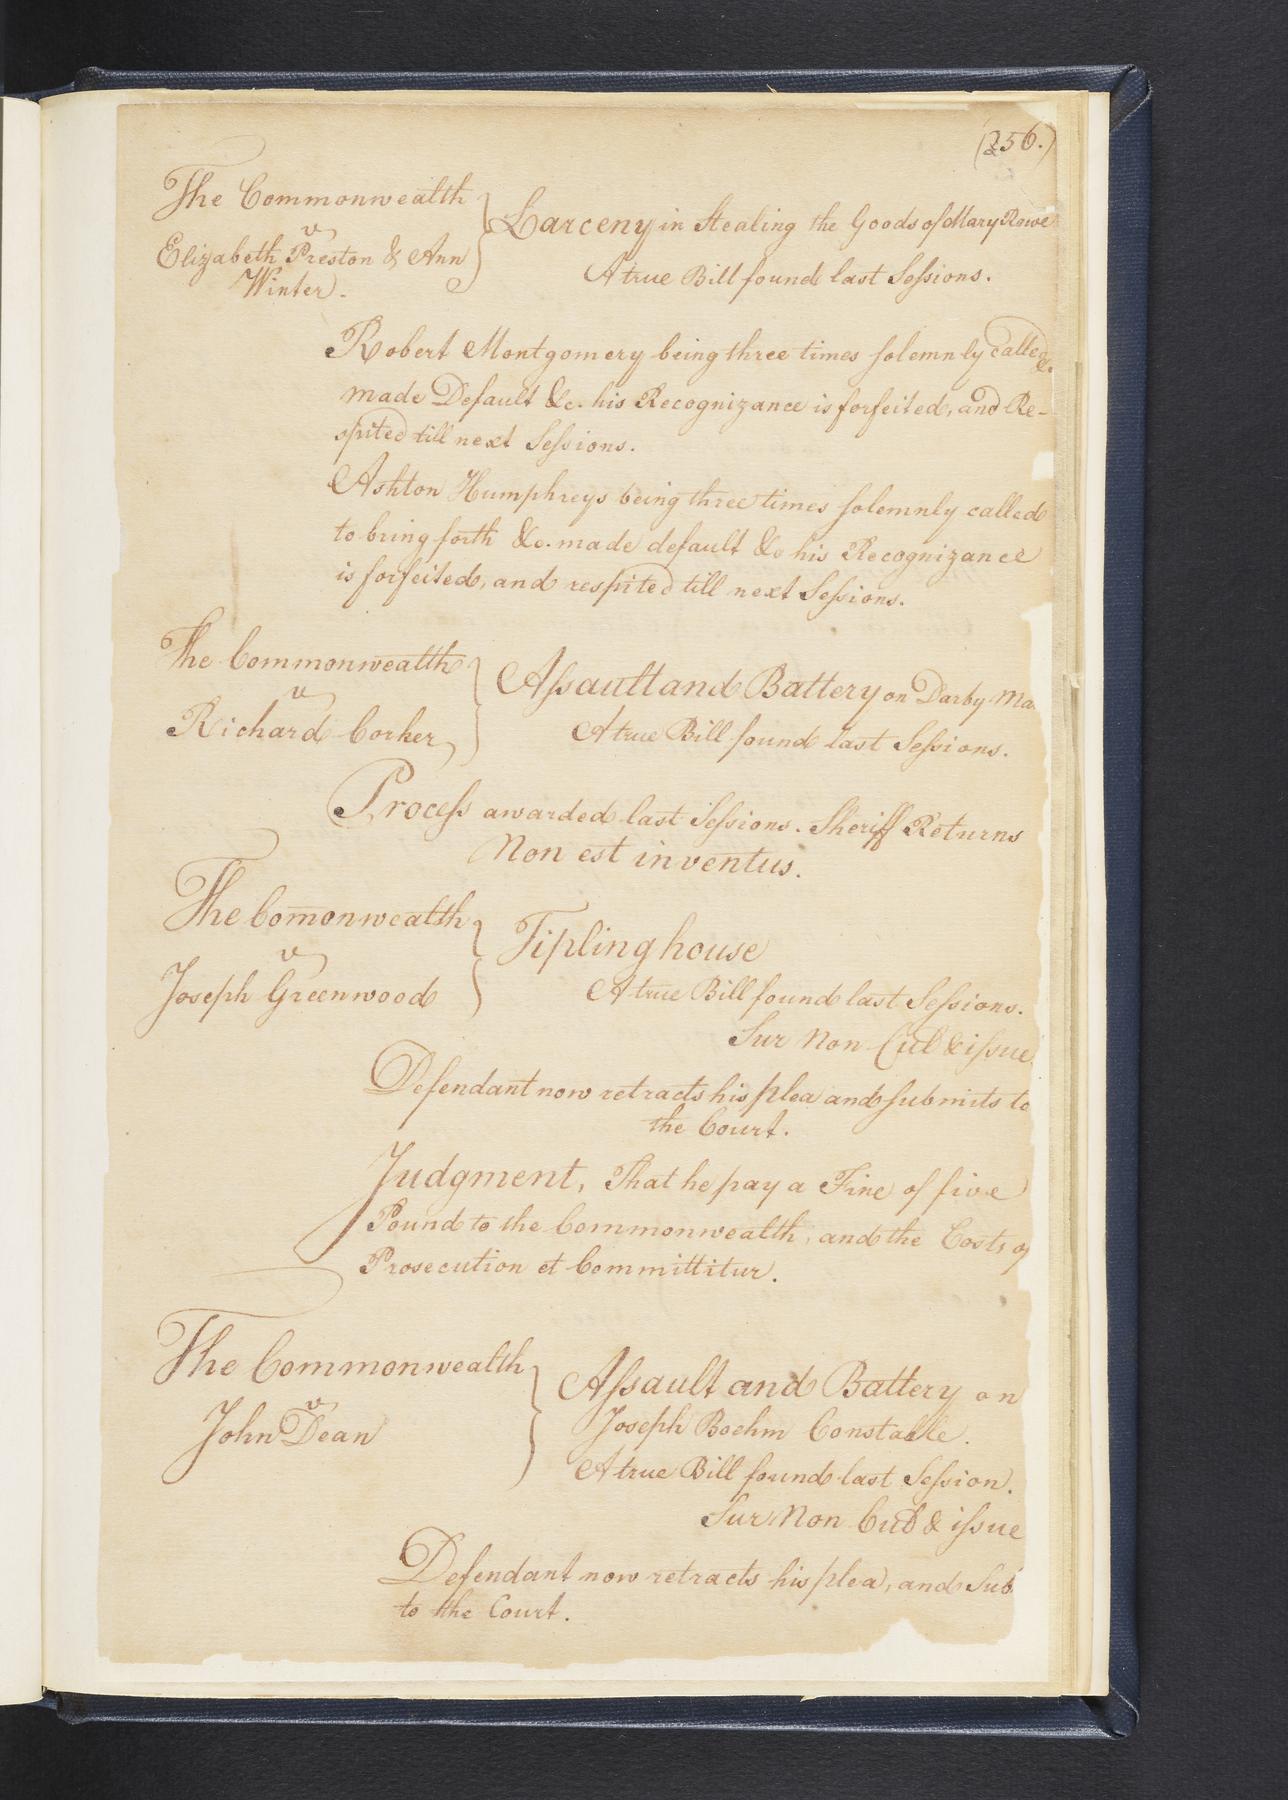 (256.)
The Commonwealth
v
Elizabeth Preston & Ann
Winter.
Larceny in Stealing the Goods of Mary Rowe
A true Bill found last Sessions.
Robert Montgomery being three times solemnly called &c.
made Default &c. his Recognizance is forfeited, and Re-
spited till next Sessions.
Ashton Humphreys being three times solemnly called
to bring forth &c. made default &c his Recognizance
is forfeited, and respited till next Sessions.
The Commonwealth
v
Richard Corker
Assault and Battery on Darby Ma
A true Bill found last Sessions.
Process awarded last Sessions. Sheriff Returns
Non est inventus.
The Com̄onwealth
v
Joseph Greenwood
Tipling house
A true Bill found last Sessions.
Sur Non Cul & issue
Defendant now retracts his plea and submits to
the Court.
Judgment, That he pay a Fine of five
Pound to the Commonwealth, and the Costs of
Prosecution et Committitur.
The Commonwealth
v
John Dean
Assault and Battery on
Joseph Boehm Constable.
A true Bill found last Session.
Sur Non Cul & issue
Defendant now retracts his plea, and Sub
to the Court.